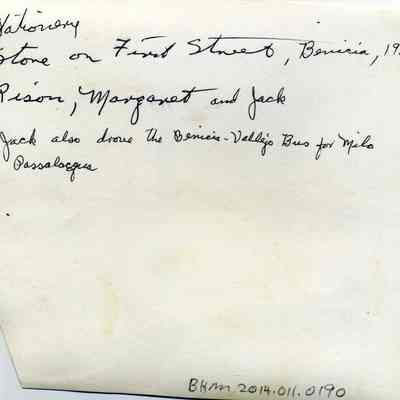 Stationery
Store on First Street, Benicia, 19
Rison, Margaret and Jack
Jack also drove the Benicia-Vallejo Bus for Milo
Passalacqua
BHM 2014.011.0190